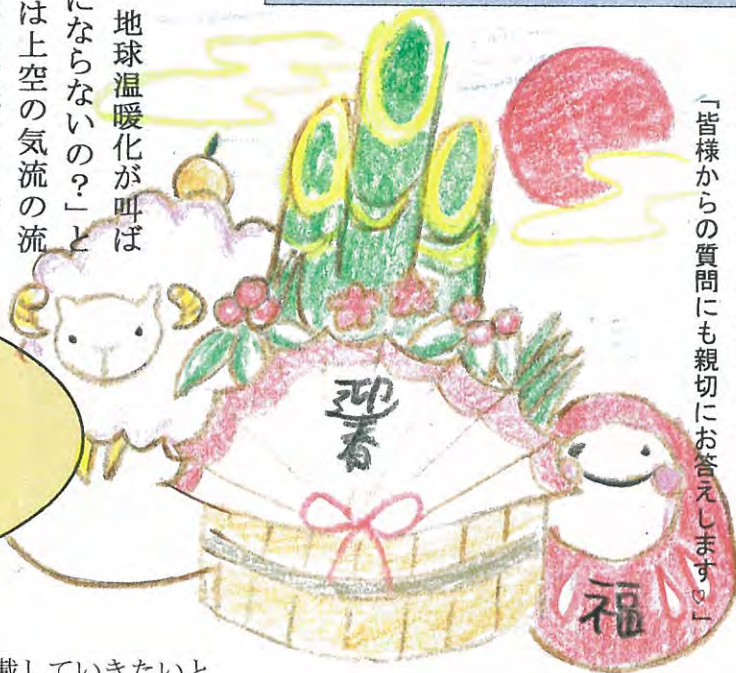 「皆様からの質問にも親切にお答えします♡」
地球温暖化が叫ば
にならないの？」と
は上空の気流の流
迎春
福
載していきたいと